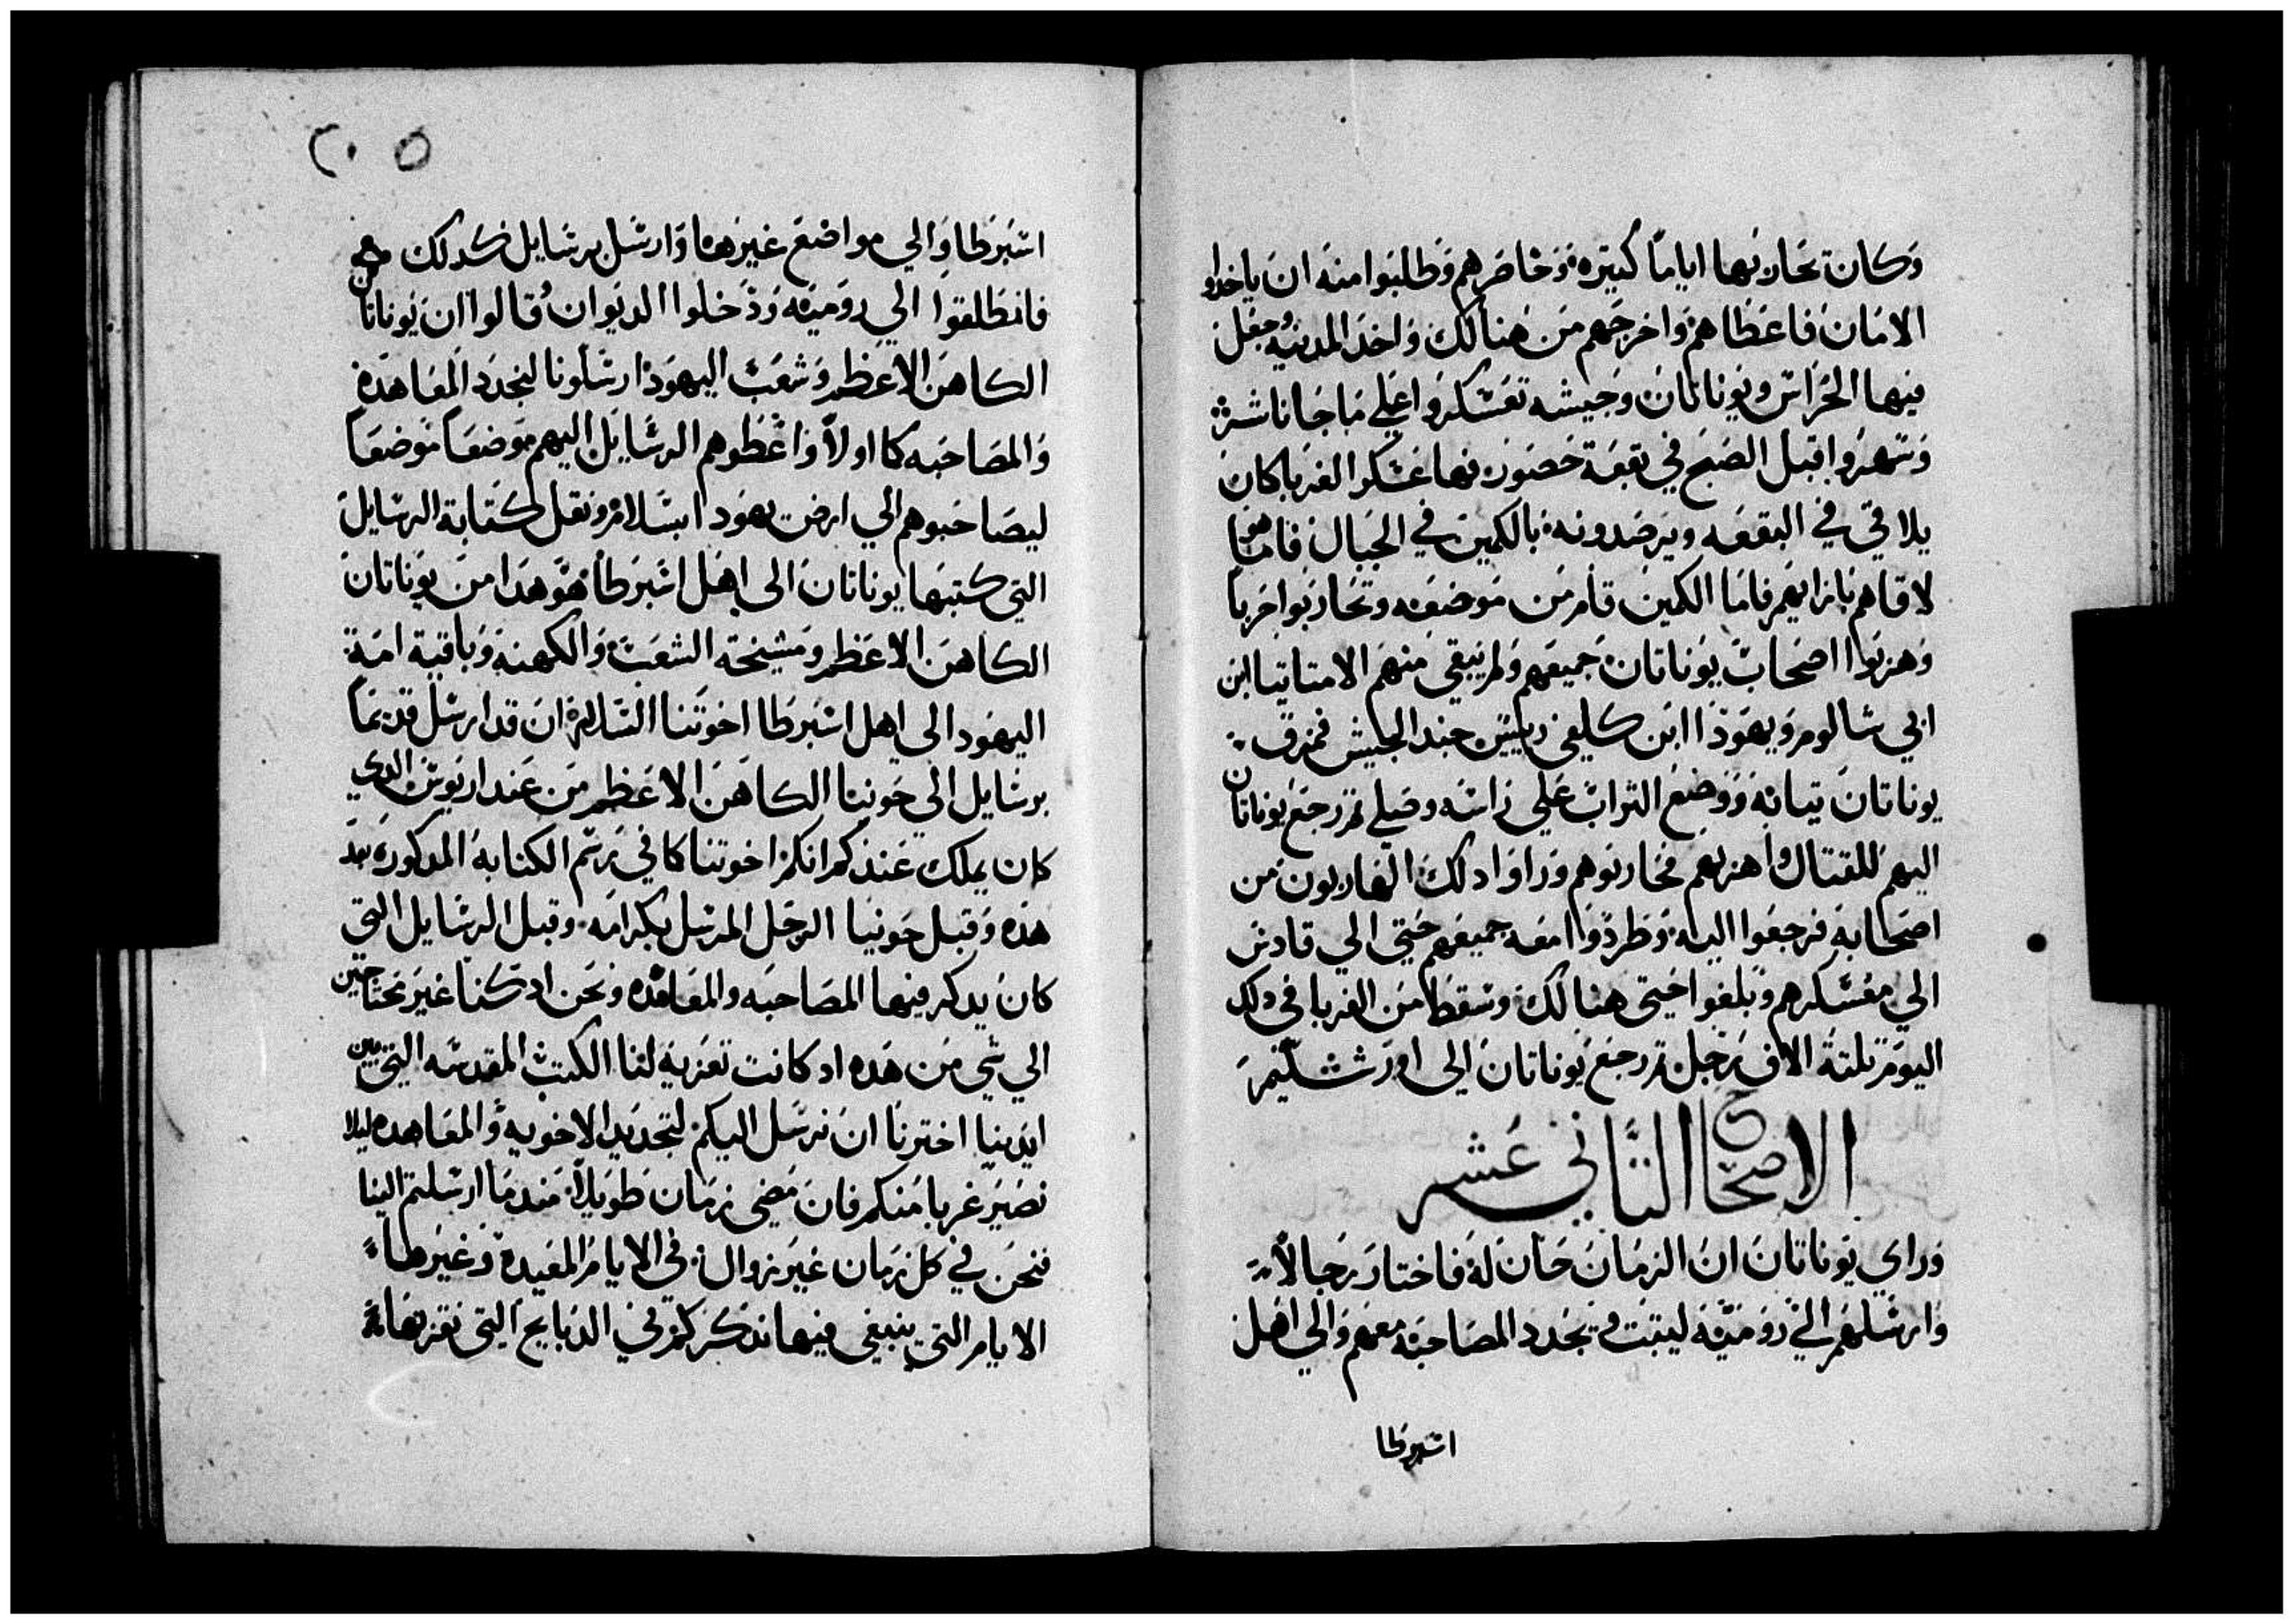 وكان تحاربها اياما كتيره وحاصرهم وطلبوا منه ان ياخدوا
الامان فاعطاهم واخرجهم من هنالك واخد المدينه وجعل
فيها الحراس ويوناتان وجيشه تعسكروا علي ما جاناشر
وتهروا قبل الصبح في بقعة حصور نها عسكر الغربا كان
يلاقي في البقعه ويرصدونه بالكمين في الجبال فاما هو
لاقاهم بازايهم فاما الكمين قام من موضعه وتحاربوا حربا
وهربوا اصحاب يوناتان جميعهم ولم يبقي منهم الا متاتيا ابن
ابي شالوم ويهودا ابن كلفي رييس جند الجيش فمزق
يوناتان تيابه ووضع التراب علي راسه وصلي تم رجع يوناتان
اليهم للقتال واهزمهم فحاربوهم وراوا دلك الهاربون من
اصحابه فرجعوا اليه وطردوا معه جميعهم حتي الي قادس
الي معسكرهم وبلغوا حتي هنالك وسقط من الغربا في دلك
اليوم تلتة الاف رجل تم رجع يوناتان الي اورشليم
الاصحاح التاني عشر
وراي يوناتان ان الزمان حان له فاختار رجالا
وارسلهم الي روميه ليتبت وتجدد المصاحبه معهم والي اهل
اسبرطا
٢٠٥
اسبرطا والي مواضع غيرها وارسل برسايل كدلك
فانطلقوا الي روميه ودخلوا الديوان وقالوا ان يوناتان
الكاهن الاعظم وشعب اليهود ارسلونا لنجدد المعاهده
والمصاحبه كما اولا واعطوهم الرسايل اليهم موضعا موضعا
ليصاحبوهم الي ارض يهودا بسلام ونقل كتابة الرسايل
التي كتبها يوناتان الي اهل اسبرطا هو هدا من يوناتان
الكاهن الاعظم ومشيخة الشعب والكهنه وباقية امة
اليهود الي اهل اسبرطا اخوتنا السلام ان قد ارسل قديما
برسايل الي حونيا الكاهن الاعظم من عند اريوس الدي
كان يملك عندكم انكم اخوتنا كما في رسم الكتابه المدكوره بعد
هده وقبل حونيا الرجل المرسل بكرامه وقبل الرسايل التي
كان يدكر فيها المصاحبه والمعاهده ونحن اد كنا غير محتاجين
الي شي من هده اد كانت تعزيه لنا الكتب المقدسه التي بين
ايدينا اخترنا ان نرسل اليكم لتجديد الاخويه والمعاهده ليلا
نصير غربا منكم فان مضي زمان طويلا مند ما ارسلتم الينا
فنحن في كل زمان غير زوال في الايام المعيده وغيرها
الايام التي ينبغي فيها ندكركم في الدبايح التي نقربها